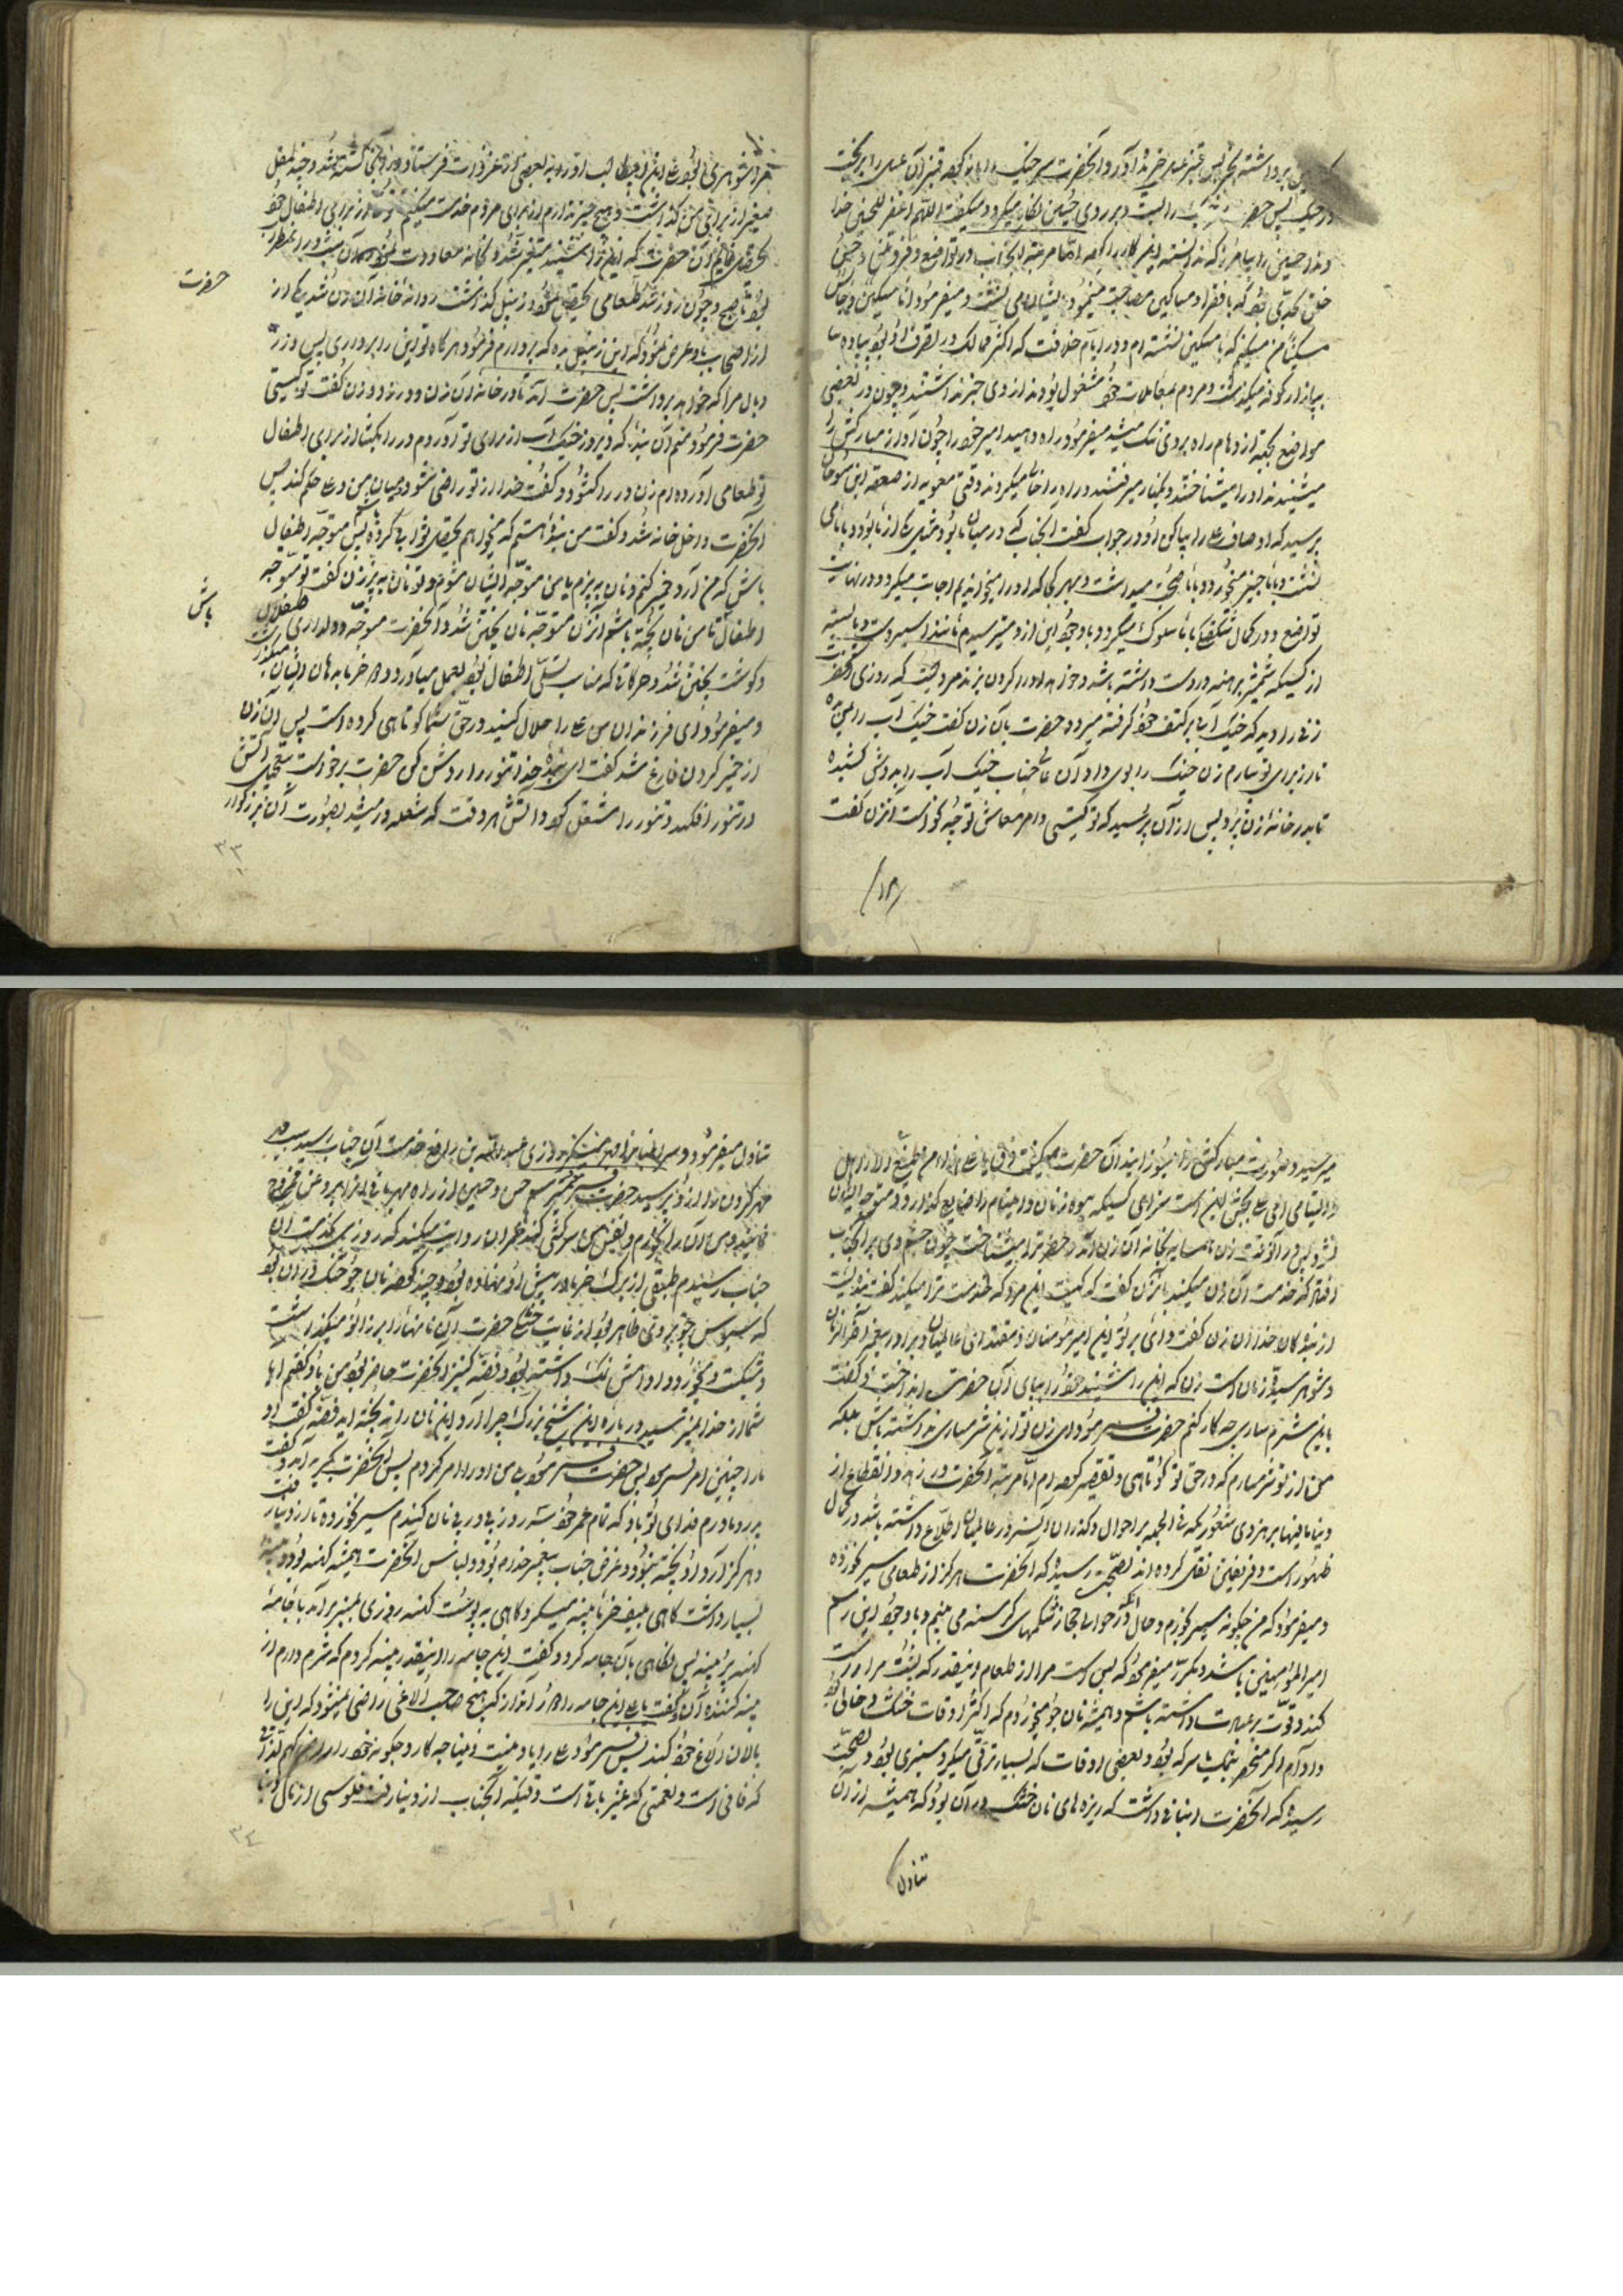 برداشته پس قنبر عسل خریده آورد و آنحضرت سر خیک را باز کرده قنبر آن عسل را بریخت
در خیک پس حضرت را بست و بر روی حسین نگاه میکرد و میگفت اللهم اغفر للحسین خدا
وندا حسین را بیامرز که ندانسته این کار را کرده اما مرتبه آنجناب در تواضع و فروتنی و حسن
خلق بحدی بود که با فقرا و مساکین مصاحبت مینمود و با ایشان می نشست و میفرمود انا مسکین و جالس
مسکینا من مسکینم که با مسکین نشسته ام و در ایام خلافت که اکثر ممالک در تصرف او بود پیاده
ببازار کوفه میگذشت و مردم بمعاملات خود مشغول بودند از وی خبر نداشتند و چون در بعضی
مواضع بجهة ازدحام راه بر وی تنک میشد میفرمود راه دهید امیر خود را چون آواز مبارکش را
میشنیدند او را میشناختند و بکنار میرفتند و راه را خالی میکردند وقتی معویه از صعصعه ابن صوحان
پرسید که اوصاف علی را بیان کن او در جواب گفت آنجناب که در میان ما بود مثل یکی از ما بود و با ما می
نشست و با ما چیز میخورد و با ما صحبت میداشت و بهر کجا که او را میخواندیم اجابت میکرد و در نهایت
تواضع و در کمال شکفتگی با ما سلوک میکرد و با وجود این از او میترسیدیم مانند اسیر دست و پا بسته
از کسیکه شمشیر برهنه در دست داشته باشد و خواهد او را گردن بزند مرویست که روزی آنحضرت
زنی را دید که خیک آبی بر کتف خود گرفته میرود حضرت بآن زن گفت خیک آب را بمن ده
تا از برای تو بیارم زن خیک را بوی داد آن عالیجناب خیک آب را بدوش کشیده
تا بدر خانه زن برد پس از آن پرسید که تو کیستی و امر معاش تو چگونه است آن زن گفت
مرا شوهری بود علی ابن ابیطالب او را به بعضی از غزوات فرستاد و در آنجا کشته شد و چند طفل
صغیر از برای من گذاشت و هیچ چیز ندارم از برای مردم خدمت میکنم و از برای اطفال خود
تحصیل میکنم آن حضرت که این را شنید متغیر شد و بخانه معاودت نمود و آن شب در اضطراب
بود تا صبح و چون روز شد طعامی تحصیل نمود و در زنبیل گذاشت روانه خانه آن زن شد یکی از
از اصحاب باو عرض نمود که این زنبیل بده که بردارم فرمود هرگاه تو این را برداری پس وزر
و بال مرا که خواهد برداشت پس حضرت آمد تا در خانه آن زن و در زد و زن گفت تو کیستی
حضرت فرمود منم آن بنده که دیروز خیک آب از برای تو آوردم در را بکشا از برای اطفال
تو طعامی آورده ام زن در را کشود و گفت خدا از تو راضی شود و میان من و علی حکم کند پس
آنحضرت داخل خانه شد و گفت من بنده هستم که میخواهم تحصیل ثوابی کرده باشم پس متوجه اطفال
باش که من آرد خمیر کنم و نان به پزم یا من متوجه ایشان شوم و تو نان به پز زن گفت تو متوجه
اطفال تا من نان پخته باشم آن زن متوجه نان پختن شد و آنحضرت متوجه دلداری طفلان
و گوشت پختن شد و حرکاتی که مناسب تسلی اطفال بود بعمل میآورد و خرما بدهان ایشان میگذاشت
و میفرمود ای فرزندان من علی را حلال کنید در حق شما کوتاهی کرده است پس آن زن
از خمیر کردن فارغ شد گفت ای بنده خدا تنور را روشن کن حضرت برخواست هیمه آتش
در تنور افکند و تنور را مشتعل کرد و آتش هر وقت که شعله ور میشد بصورت آن بزرگوار
حضرت
باش
۳۳
میرسید و صورت مبارکش را میسوزانید آن حضرت میگفت ذق یا علی هذا من ضیع الارامل
و الیتامی ای علی بچش این است سزای کسیکه بیوه زنان و ایتام را ضایع گذارد و متوجه ایشان
نشود پس در آنوقت زن همسایه بخانه آن زن آمد و حضرت را میشناخت چون چشم وی بر آنجناب
افتاد که خدمت آن زن میکند بآن زن گفت که کیست این مرد که خدمت ترا میکند گفت بنده ایست
از بندگان خدا آن زن گفت وای بر تو این امیر مؤمنان و مقتدای عالمیان و برادر پیغمبر آخر الزمان
و شوهر سیده زنان است زن که این را شنید خود را بپای آن حضرت انداخت و گفت
با این شرمساری چه کار کنم حضرت فرمود ای زن تو از من شرمساری نداشته باش بلکه
من از تو شرمسارم که در حق تو کوتاهی و تقصیر کرده ام اما مرتبه آنحضرت در زهد و انقطاع از
دنیا ما فیها بر هر ذی شعور که فی الجمله بر احوال و گذران آن سرور عالمیان اطلاع داشته باشد در کمال
ظهور است و فریقین نقل کرده اند بصحت رسیده که آنحضرت هرگز از طعامی سیر نخورده
و میفرمود که من چگونه سیر بخورم و حال آنکه در حوالی حجاز شکمهای گرسنه می بینم و با وجود این اسم
امیر المؤمنین باشد و مکرر میفرمود که بس است مرا از طعام اینقدر که پشت مرا راست
کند و قوت بر عبادت داشته باشم و همیشه نان جو میخوردم که اکثر اوقات خشک و خالی بود
و ادام اگر منحصر بنمک یا سرکه بود و بعضی اوقات که بسیار ترقی میکرد سبزی بود و بصحت
رسیده که آنحضرت انبانی داشت که ریزه های نان خشک در آن بود که همیشه از آن
تناول
تناول میفرمود و سر انبان را مهر میکرد روزی عبدالله بن رافع خدمت آن جناب رسید سبب
مهر کردن را از او پرسید حضرت فرمود میترسم حسن و حسین از راه مهربانی آنرا بروغن
جناب رسیدم طبقی از برک خرما در پیش او نهاده بود و چند قرصه نان جو خشک در آن بود
که سبوس جو بر روی نان ظاهر بود از غایت خشکی حضرت آن نانها را بر زانو میگذاشت
و میشکست و میخورد و ادامش نمک داشته بود و فضه کنیز آنحضرت حاضر بود من باو گفتم آیا
شما از خدا نمیترسید در باره این شیخ بزرگ چرا آرد این نان را نه بیخته اید فضه گفت او
ما را چنین امر فرموده پس حضرت فرمود من او را امر کردم پس آنحضرت بگریه آمد و گفت
پدر و مادرم فدای تو باد که تمام عمر خود سه روز پی در پی نان گندم سیر نخورده تا از دنیا رفت
و هرگز آرد او بیخته نبود و غرض جناب پیغمبر خدا بود و لباس آنحضرت همیشه کهنه بود و پینه
بسیار داشت گاهی بلیف خرما پینه میکرد و گاهی به پوست کهنه روزی بمنبر برآمد با جامه
کهنه پر پینه پس نگاهی بآن جامه کرد و گفت این جامه را اینقدر پینه کردم که شرم دارم از
پینه کننده آن و گفت یا علی این جامه را دور انداز که هیچ صاحب الاغی راضی نمیشود که این را
پالان الاغ خود کند پس فرمود علی را با زینت دنیا چه کار و چگونه خود را راضی کنم بلذتی
که فانی است و نعمتی که غیر باقی است و قتیکه آنجناب از دنیا رفت فلوسی از مال دنیا
۳۴